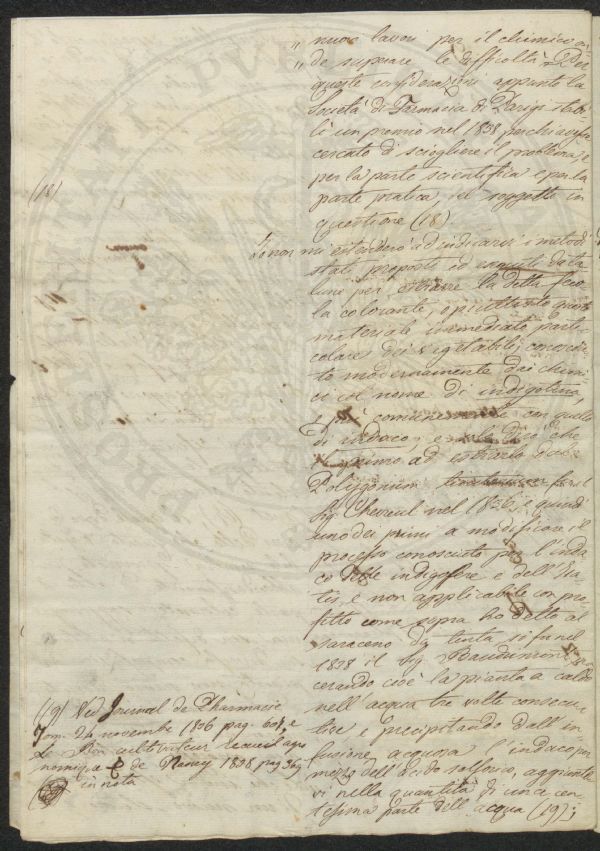 „ nuovi lavori per il chimico on
„ de superare le difficoltà. Per
queste considerazioni appunto la
Società di Farmacia di Parigi stabi-
lì un premio nel 1838, perchi avesse
cercato di sciogliere il problema e
per la parte scientifica e per la
parte pratica, sul soggetto in
questione (18).
(18)
Io non mi estenderò ad indicarvi i metodi
stati proposti ed eseguiti da ta
luni per estrarre la detta feco
la colorante, o piuttosto questo
materiale immediato parti
colare dei vegetabili, conosciu
to modernamente dai chimi
ci col nome di indigotina
e più comunemente con quello
di indaco, e dirò che
il primo ad estrarlo dal
Polygonum tinctorium fu il
Sig. Chevreul nel 1836, e quindi
uno dei primi a modificare il
processo conosciuto per l'inda
co delle indigofere e dell'Isa
tis, e non applicabile con pro
fitto come sopra ho detto al
saraceno da tinta si fu nel
1838 il Sig. Baudrimont, ma
cerando cioè la pianta a caldo
nell'acqua tre volte consecu
tive e precipitando dall'in
fusione acquosa l'indaco per
mezzo dell'acido solforico, aggiunto
vi nella quantità di una cen
tesima parte dell'acqua (19);
(19) Ved. Journal de Pharmacie
Tom. 24 novembre 1836 pag. 601, e
Le Bon cultivateur recueil agro
nomique de Nancy 1838 pag. 363
in nota